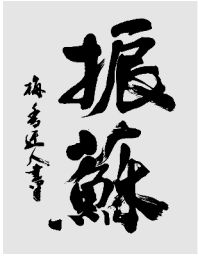 振蘇
梅香逆人書